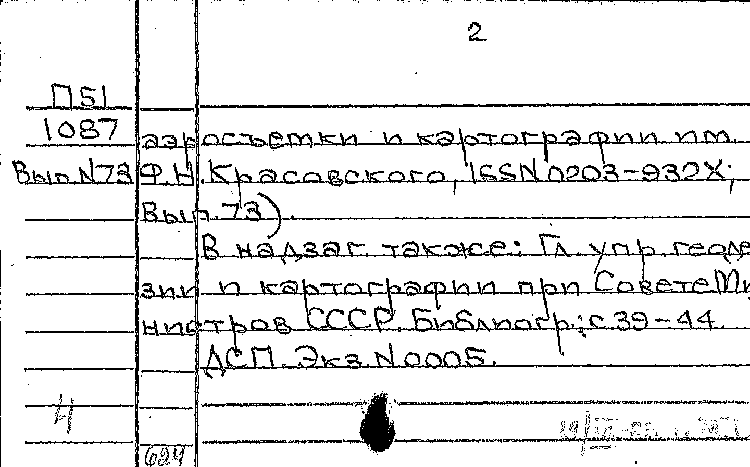 2
П51
1087 аэросъемки и картографии им.
Вып.N73 Ф.Н.Красовского, ISSN 0203-932X;
Вып.73).
В надзаг. также: Гл. упр. геоде-
зии и картографии при Совете Ми-
нистров СССР. Библиогр.: с.39-44.
ДСП. Экз.N0005.
4
624